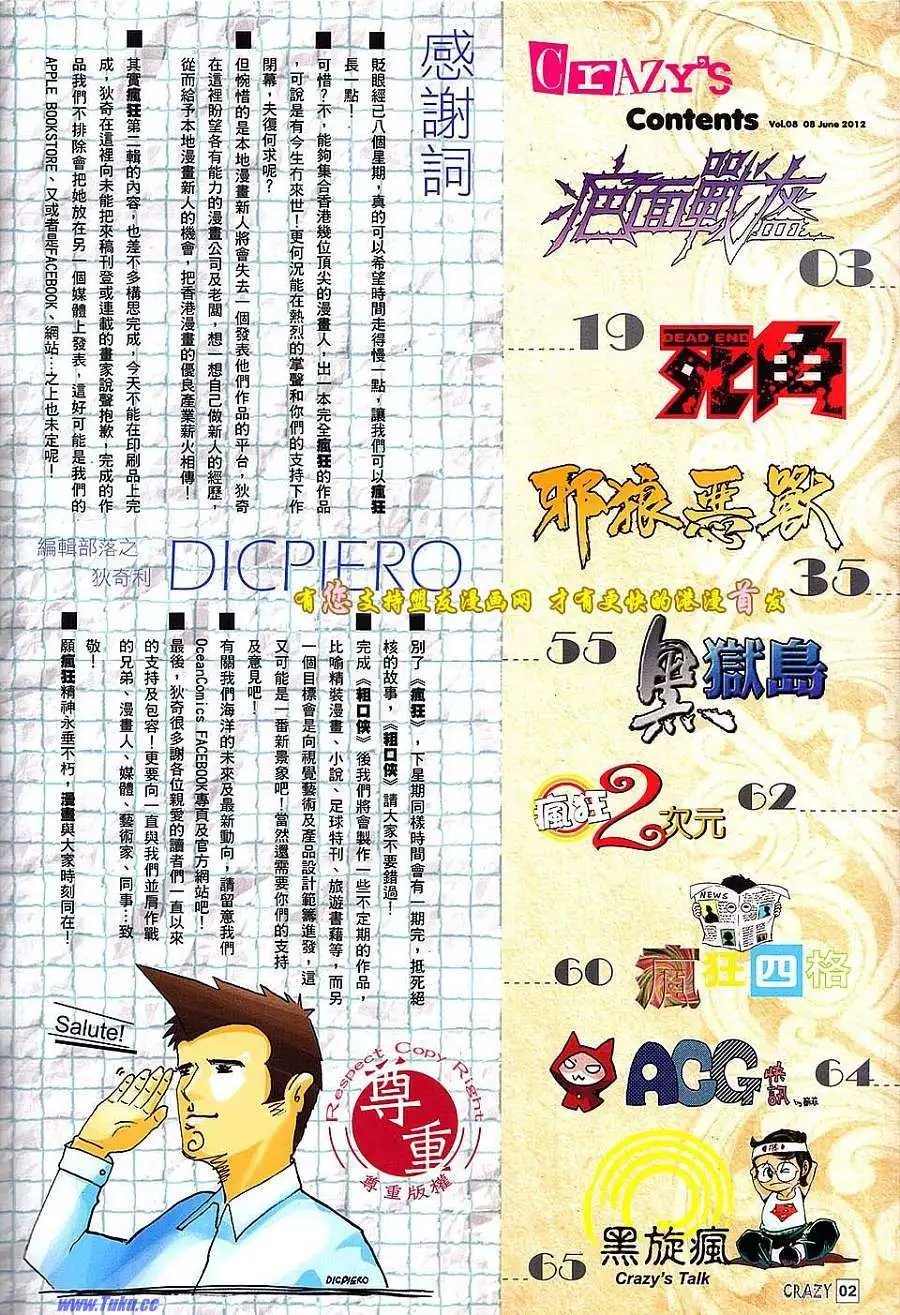 感謝詞
■ 眨眼經已八個星期，真的可以希望時間走得慢一點，讓我們可以瘋狂
長一點！
■ 可惜？不，能夠集合香港幾位頂尖的漫畫人，出一本完全瘋狂的作品
，可說是有今生冇來世！更何況能在熱烈的掌聲和你們的支持下作
閉幕，夫復何求呢？
■ 但惋惜的是本地漫畫新人將會失去一個發表他們作品的平台，狄奇
在這裡盼望各有能力的漫畫公司及老闆，想一想自己做新人的經歷，
從而給予本地漫畫新人的機會，把香港漫畫的優良產業薪火相傳！
■ 其實瘋狂第二輯的內容，也差不多構思完成，今天不能在印刷品上完
成，狄奇在這裡向未能把來稿刊登或連載的畫家說聲抱歉，完成的作
品我們不排除會把她放在另一個媒體上發表，這好可能是我們的
APPLE BOOKSTORE、又或者是FACEBOOK、網站…之上也未定呢！
編輯部落之
狄奇利 DICPIERO
■ 別了《瘋狂》，下星期同樣時間會有一期完，抵死絕
核的故事，《粗口俠》請大家不要錯過！
■ 完成《粗口俠》後我們將會製作一些不定期的作品，
比喻精裝漫畫、小說、足球特刊、旅遊書藉等，而另
一個目標會是向視覺藝術及產品設計範籌進發，這
又可能是一番新景象吧！當然還需要你們的支持
及意見吧！
■ 有關我們海洋的未來及最新動向，請留意我們
OceanComics FACEBOOK專頁及官方網站吧！
■ 最後，狄奇很多謝各位親愛的讀者們一直以來
的支持及包容！更要向一直與我們並肩作戰
的兄弟、漫畫人、媒體、藝術家、同事…致
敬！
■ 願瘋狂精神永垂不朽，漫畫與大家時刻同在！
Salute!
Respect Copy Right
尊重
尊重版權
DICPIERO
www.Tuku.cc
有您支持盟友漫画网 才有更快的港漫首发
CRAZY'S
Contents Vol.08 08 June 2012
疤面戰盔
03
19
DEAD END
死角
邪狼惡獸
35
55
黑獄島
瘋狂2次元
62
NEWS
60
瘋狂四格
ACG快訊
64
黑旋瘋
65
Crazy's Talk
CRAZY 02